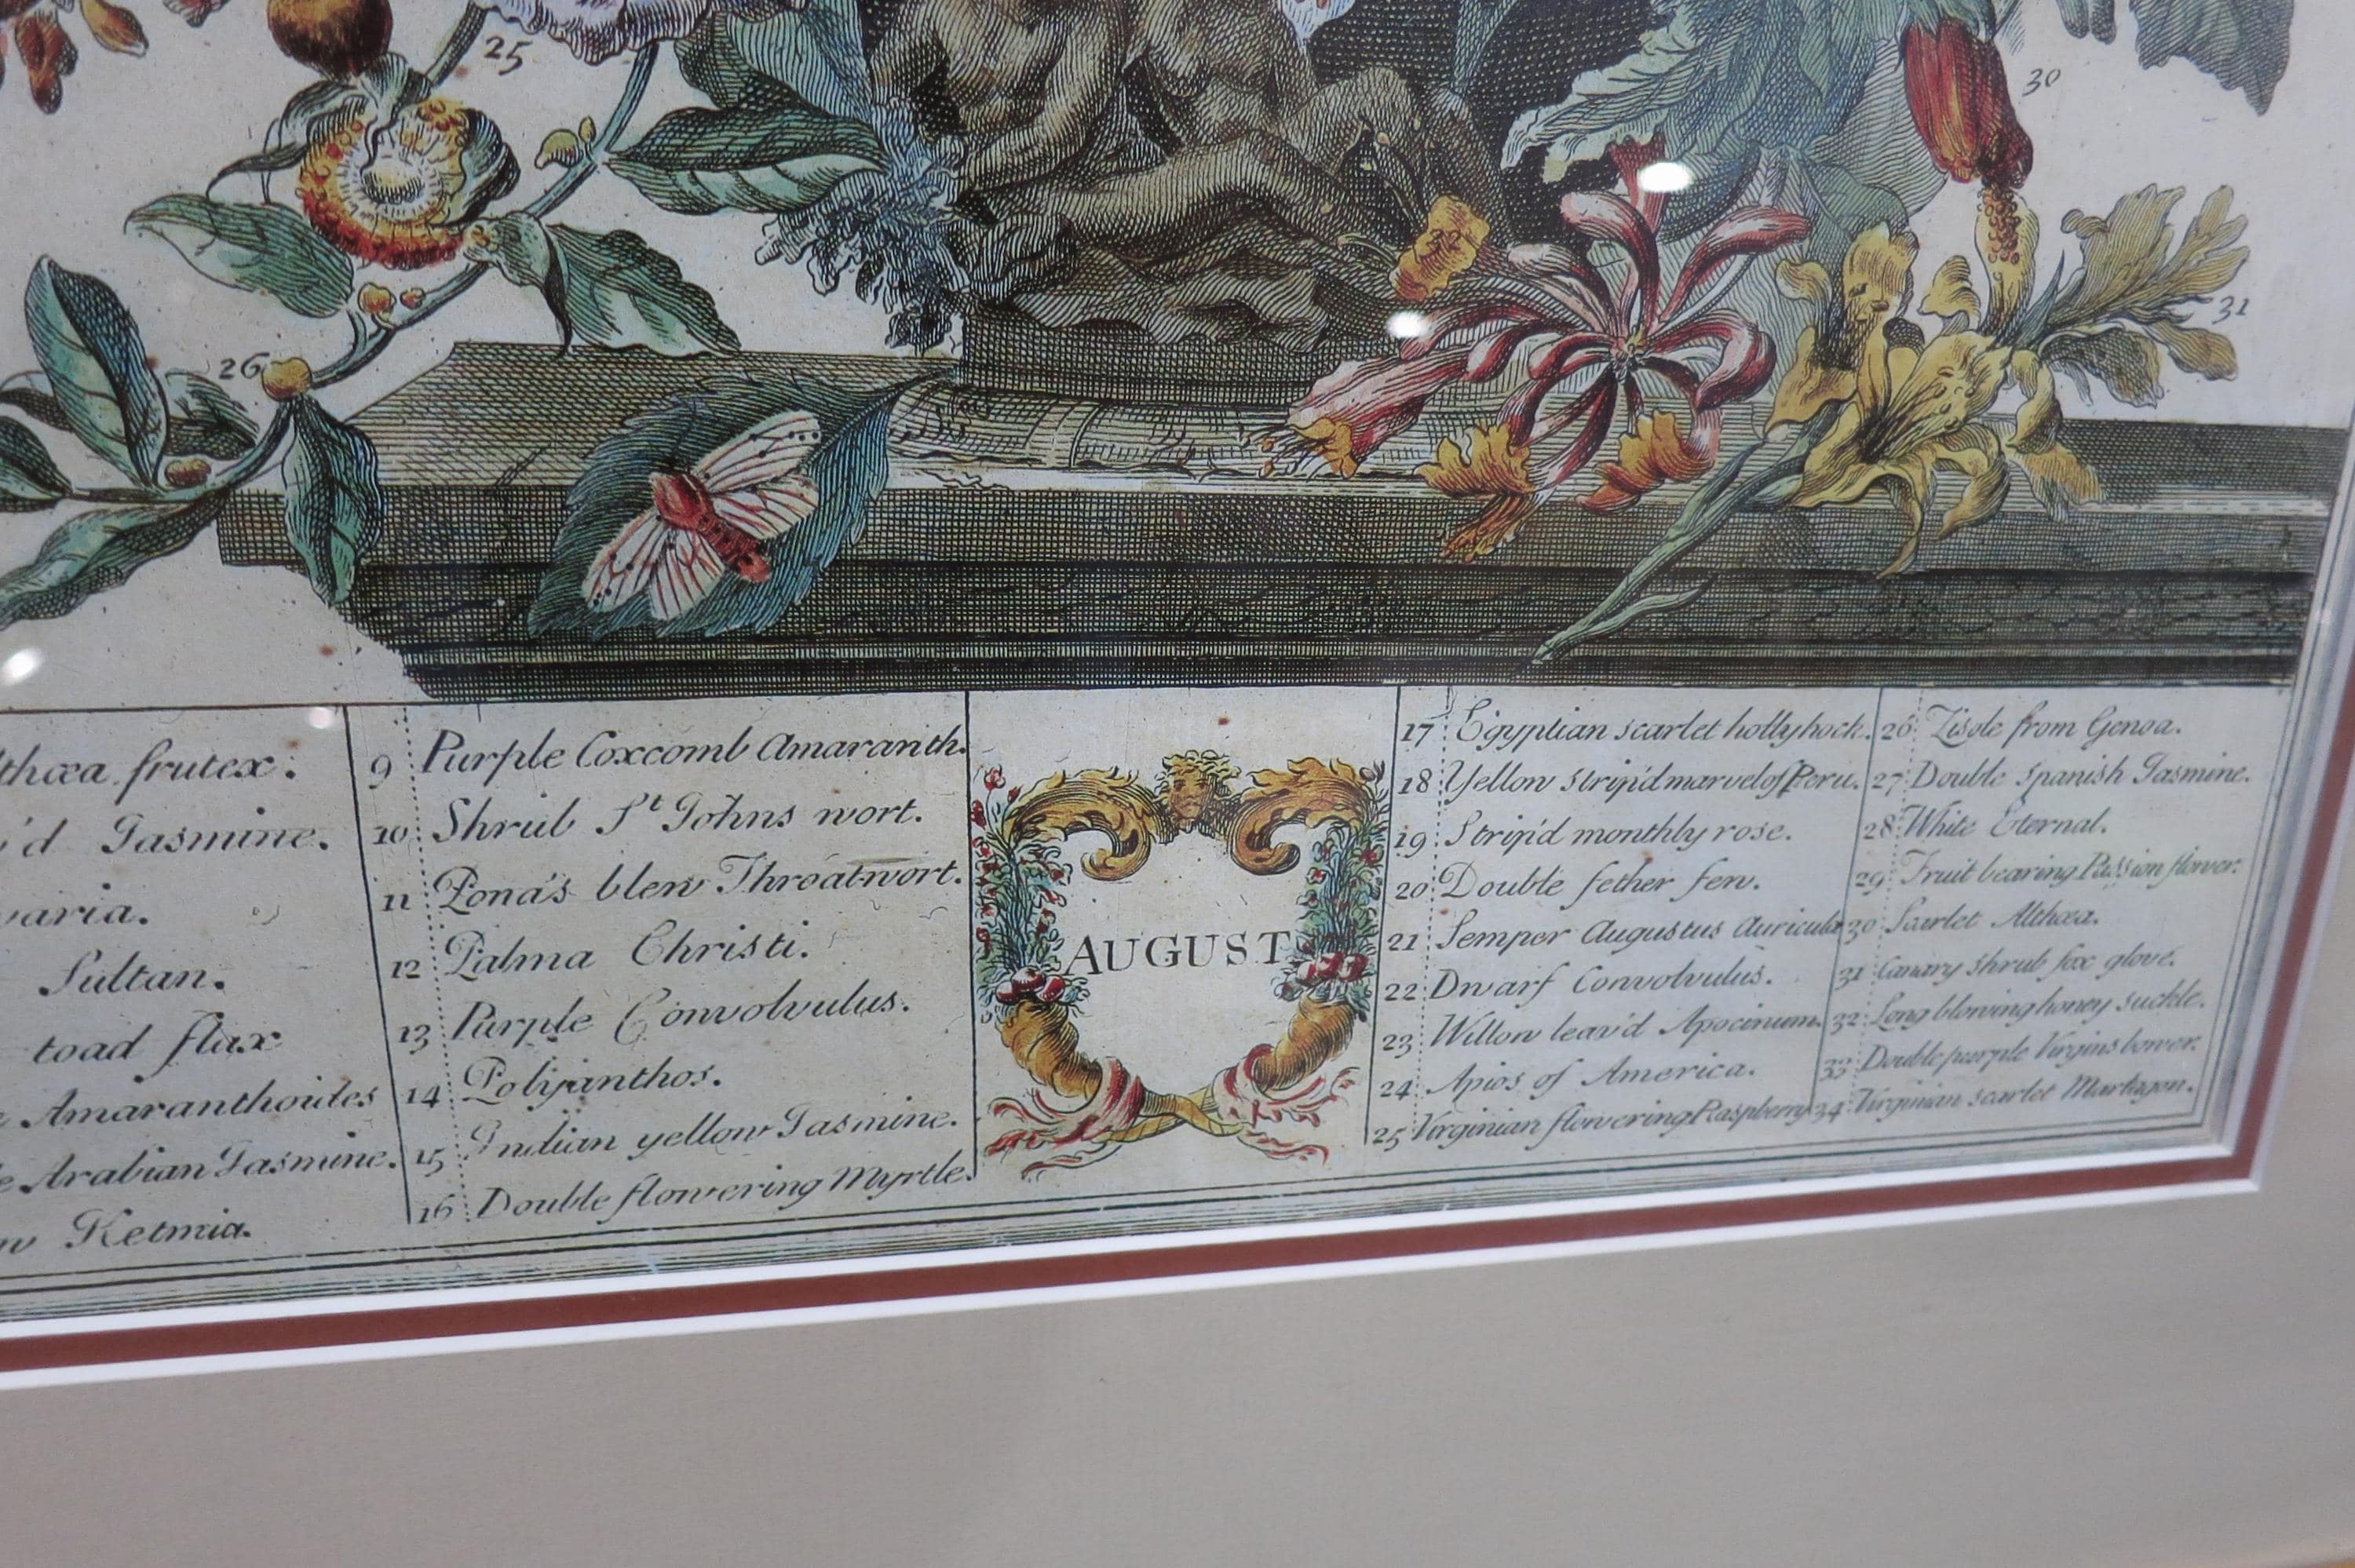 25
30
31
26
thœa frutex.
'd Jasmine.
varia.
Sultan.
toad flax
Amaranthoides
Arabian Jasmine.
Ketmia.
9 Purple Coxcomb Amaranth.
10 Shrub St Johns wort.
11 Pona's blew Throatwort.
12 Palma Christi.
13 Purple Convolvulus.
14 Polyanthos.
15 Indian yellow Jasmine.
16 Double flowering Myrtle.
AUGUST
17 Egyptian scarlet hollyhock.
18 Yellow strip'd marvel of Peru.
19 Strip'd monthly rose.
20 Double fether few.
21 Semper Augustus Auricula
22 Dwarf Convolvulus.
23 Willow leav'd Apocinum.
24 Apios of America.
25 Virginian flowering Raspberry
26 Zisole from Genoa.
27 Double Spanish Jasmine.
28 White Eternal.
29 Fruit bearing Passion flower.
30 Scarlet Althœa.
31 Canary shrub fox glove.
32 Long blowing honey suckle.
33 Double purple Virgins bower.
34 Virginian scarlet Martagon.